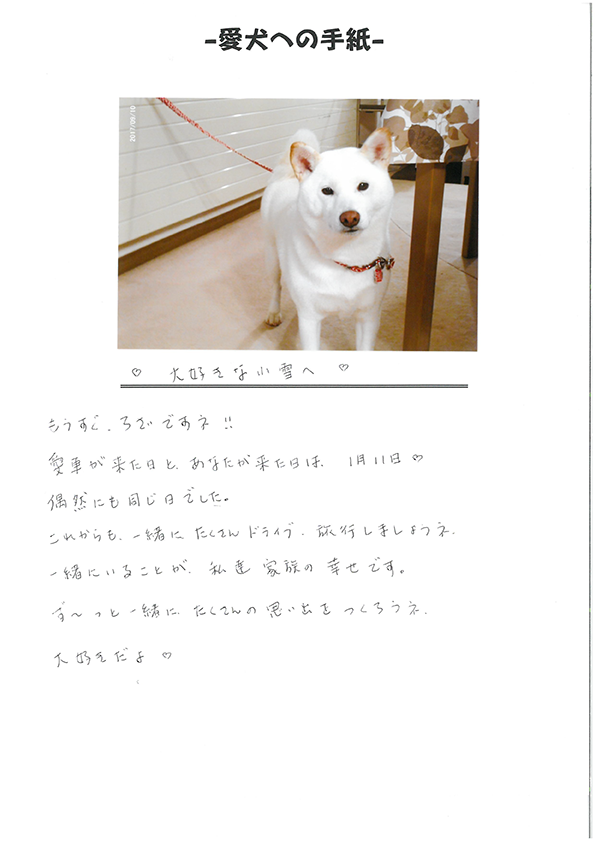 -愛犬への手紙-
2017/09/10
♡ 大好きな小雪へ ♡
もうすぐ、3才ですネ!!
愛車が来た日と、あなたが来た日は、1月11日♡
偶然にも同じ日でした。
これからも、一緒に たくさんドライブ、旅行しましょうネ.
一緒にいることが、私達 家族の 幸せです。
ず〜っと一緒に、たくさんの 思い出を つくろうネ.
大好きだよ ♡